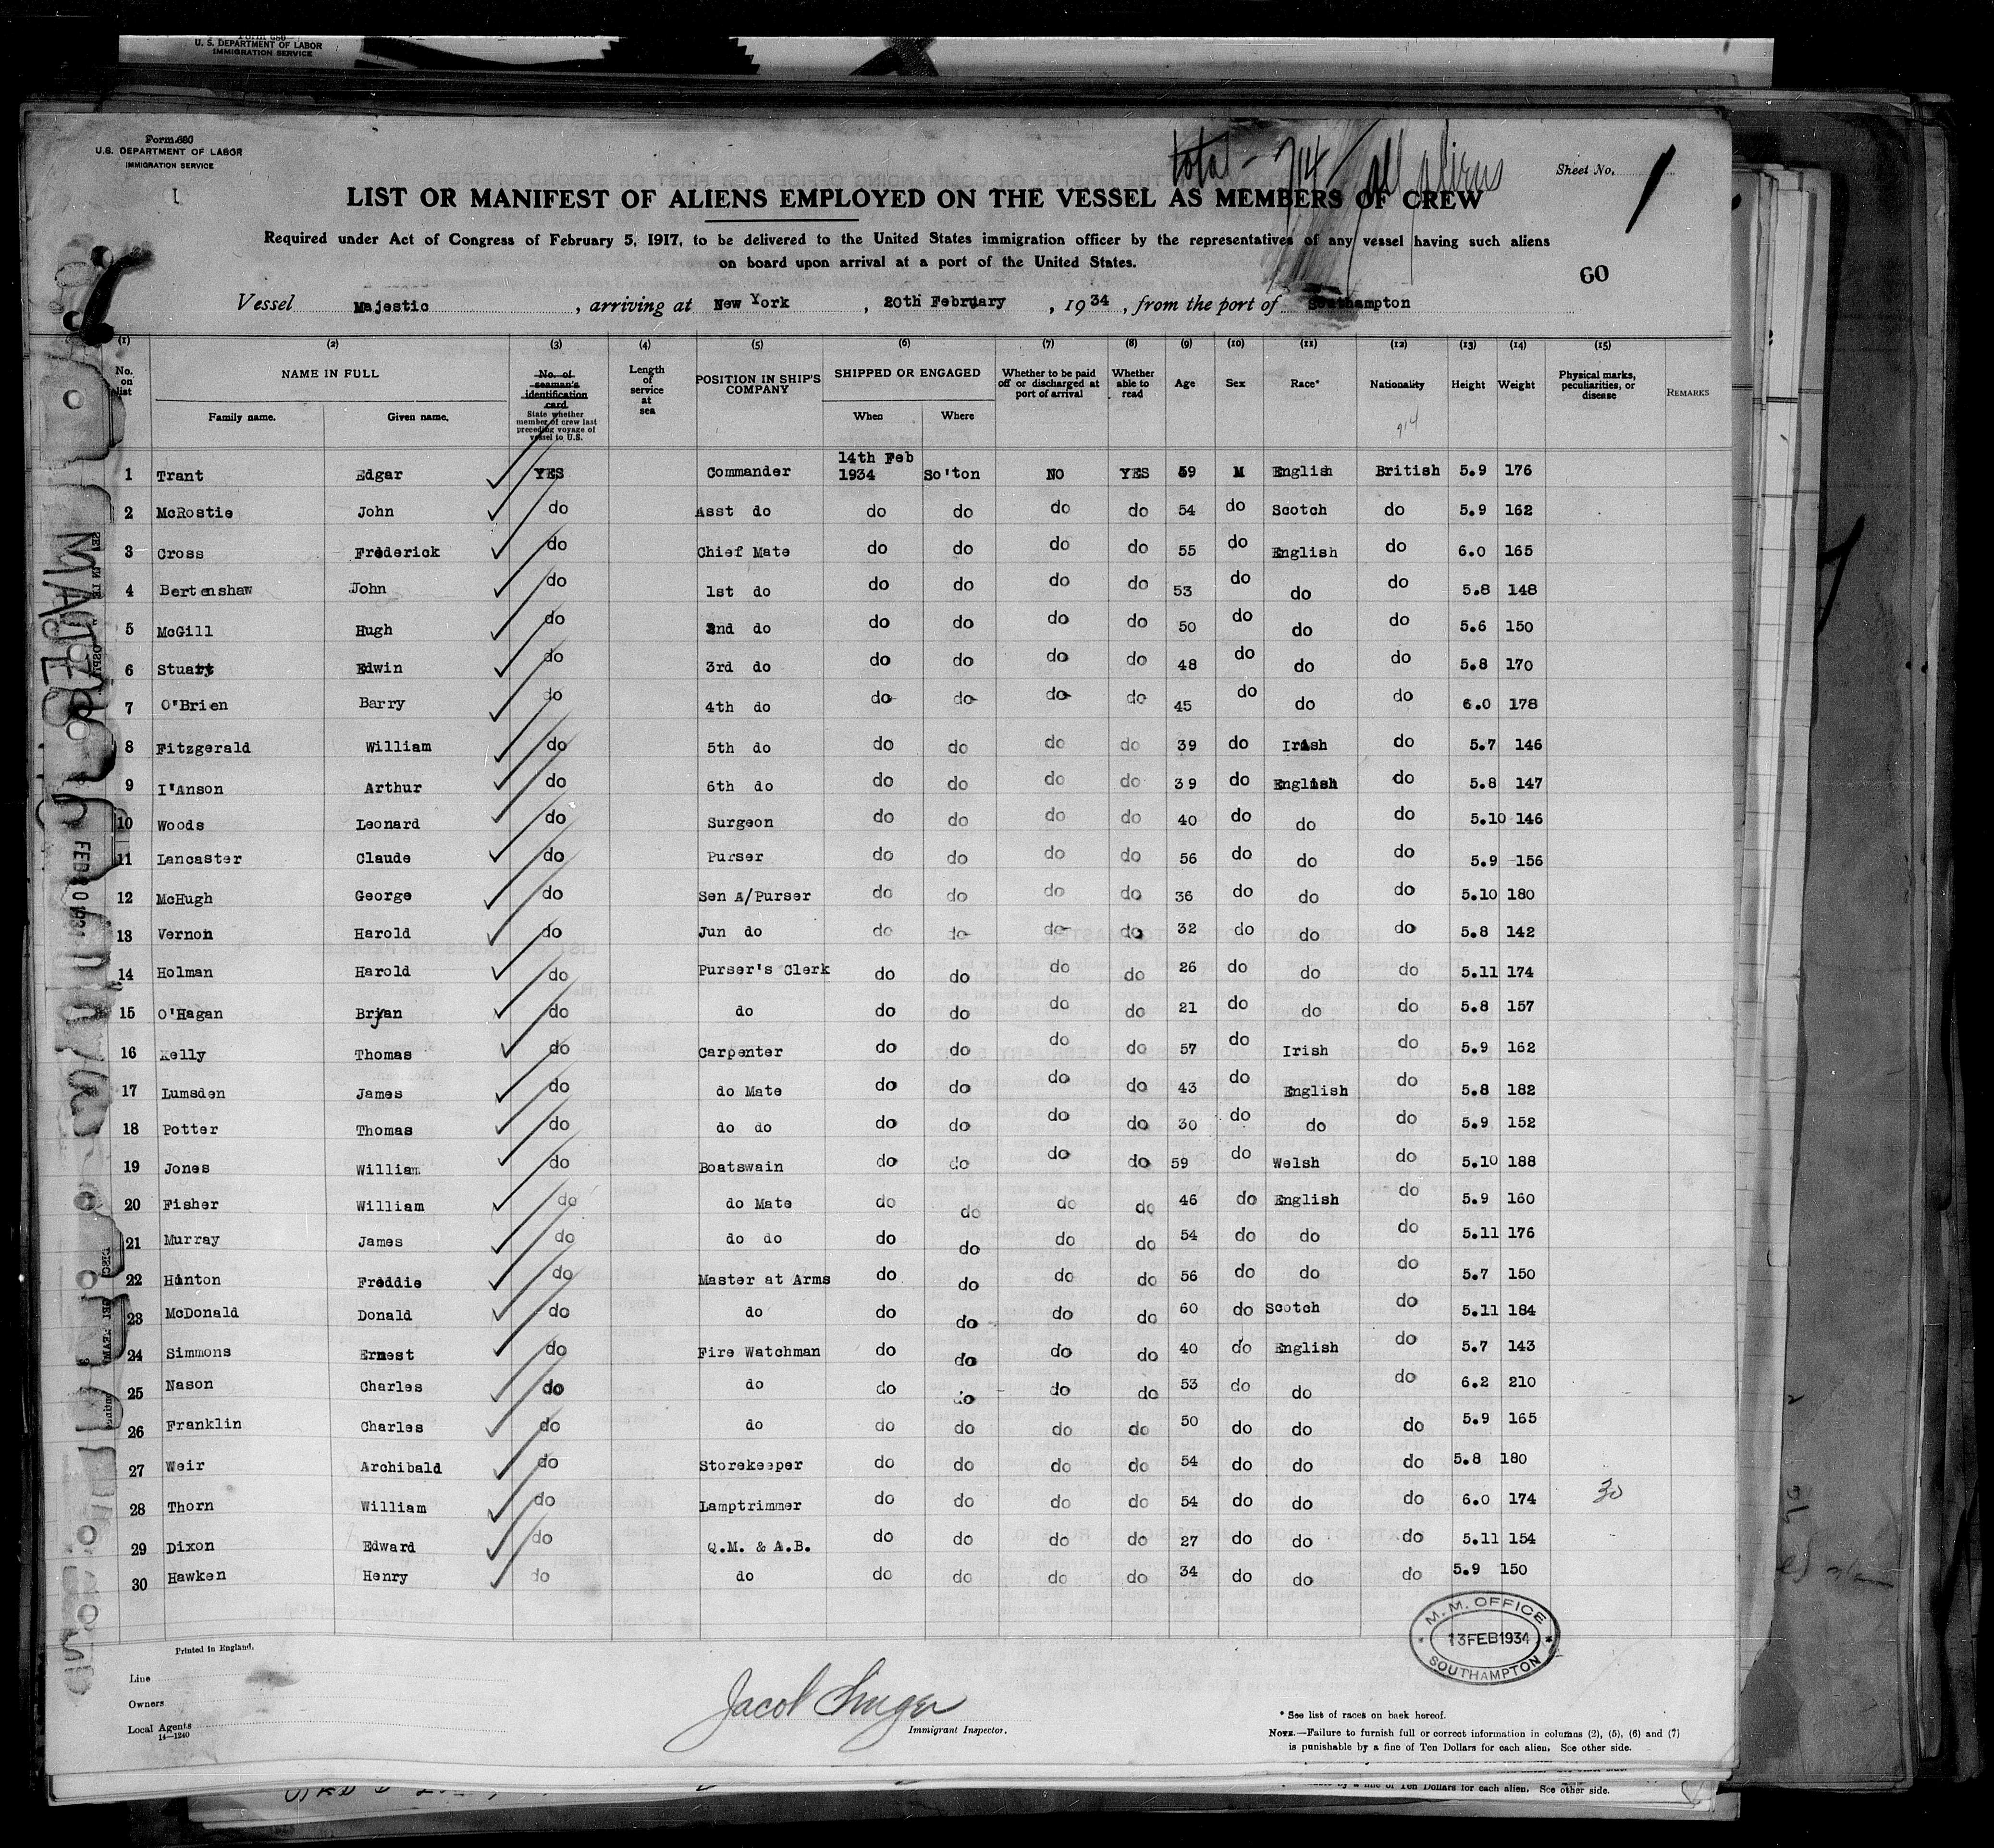 Form 680
U. S. DEPARTMENT OF LABOR
IMMIGRATION SERVICE
Form 680
U.S. DEPARTMENT OF LABOR
IMMIGRATION SERVICE
total - 914 all aliens
Sheet No. 1
LIST OR MANIFEST OF ALIENS EMPLOYED ON THE VESSEL AS MEMBERS OF CREW
Required under Act of Congress of February 5, 1917, to be delivered to the United States immigration officer by the representatives of any vessel having such aliens
on board upon arrival at a port of the United States.
60
Vessel Majestic, arriving at New York, 20th February, 1934, from the port of Southampton
(1) (2) (3) (4) (5) (6) (7) (8) (9) (10) (11) (12) (13) (14) (15)
No. on list NAME IN FULL Family name. Given name. No. of seaman's identification card State whether member of crew last preceding voyage of vessel to U.S. Length of service at sea POSITION IN SHIP'S COMPANY SHIPPED OR ENGAGED When Where Whether to be paid off or discharged at port of arrival Whether able to read Age Sex Race* Nationality Height Weight Physical marks, peculiarities, or disease REMARKS
914
1 Trant Edgar YES Commander 14th Feb 1934 So'ton NO YES 59 M English British 5.9 176
2 McRostie John do Asst do do do do do 54 do Scotch do 5.9 162
3 Cross Frederick do Chief Mate do do do do 55 do English do 6.0 165
4 Bertenshaw John do 1st do do do do do 53 do do do 5.8 148
5 McGill Hugh do 2nd do do do do do 50 do do do 5.6 150
6 Stuart Edwin do 3rd do do do do do 48 do do do 5.8 170
7 O'Brien Barry do 4th do do do do do 45 do do do 6.0 178
8 Fitzgerald William do 5th do do do do do 39 do Irish do 5.7 146
9 I'Anson Arthur do 6th do do do do do 39 do English do 5.8 147
10 Woods Leonard do Surgeon do do do do 40 do do do 5.10 146
11 Lancaster Claude do Purser do do do do 56 do do do 5.9 156
12 McHugh George do Sen A/Purser do do do do 36 do do do 5.10 180
13 Vernon Harold do Jun do do do do do 32 do do do 5.8 142
14 Holman Harold do Purser's Clerk do do do do 26 do do do 5.11 174
15 O'Hagan Bryan do do do do do do 21 do do do 5.8 157
16 Kelly Thomas do Carpenter do do do do 57 do Irish do 5.9 162
17 Lumsden James do do Mate do do do do 43 do English do 5.8 182
18 Potter Thomas do do do do do do do 30 do do do 5.9 152
19 Jones William do Boatswain do do do do 59 do Welsh do 5.10 188
20 Fisher William do do Mate do do do do 46 do English do 5.9 160
21 Murray James do do do do do do do 54 do do do 5.11 176
22 Hinton Freddie do Master at Arms do do do do 56 do do do 5.7 150
23 McDonald Donald do do do do do do 60 do Scotch do 5.11 184
24 Simmons Ernest do Fire Watchman do do do do 40 do English do 5.7 143
25 Nason Charles do do do do do do 53 do do do 6.2 210
26 Franklin Charles do do do do do do 50 do do do 5.9 165
27 Weir Archibald do Storekeeper do do do do 54 do do do 5.8 180
28 Thorn William do Lamptrimmer do do do do 54 do do do 6.0 174 30
29 Dixon Edward do Q.M. & A.B. do do do do 27 do do do 5.11 154
30 Hawken Henry do do do do do do 34 do do do 5.9 150
M.M. OFFICE
13 FEB 1934
SOUTHAMPTON
Printed in England.
Line
Owners
Local Agents
14—1240
Immigrant Inspector.
* See list of races on back hereof.
NOTE.—Failure to furnish full or correct information in columns (2), (5), (6) and (7)
is punishable by a fine of Ten Dollars for each alien. See other side.
by a fine of Ten Dollars for each alien. See other side.